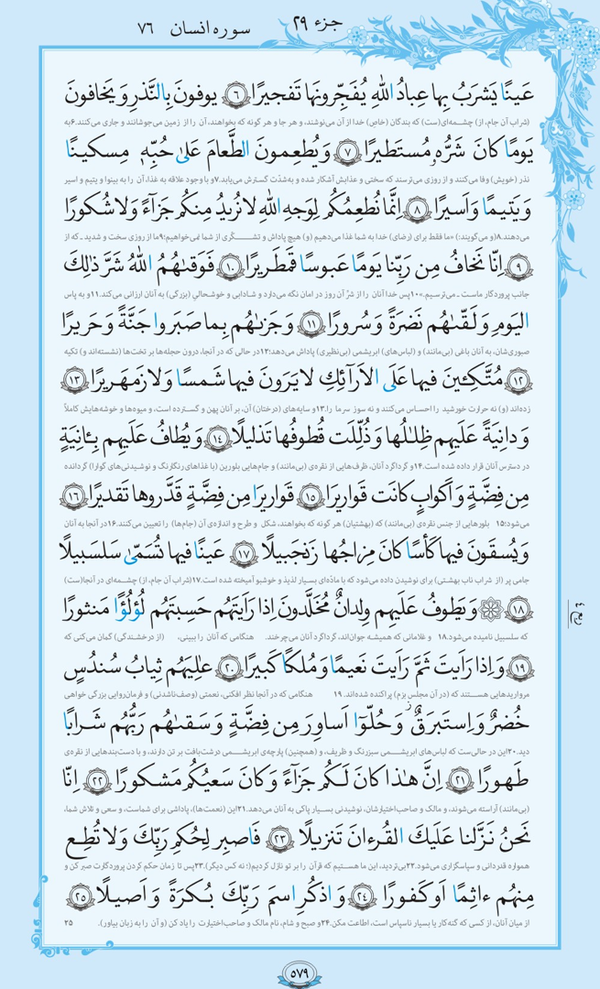 جزء ۲۹
سوره انسان ۷۶
عَینًا یَشرَبُ بِها عِبادُ اللهِ یُفَجِّرونَها تَفجیرًا ﴿۶﴾ یوفونَ بِالنَّذرِ وَ یَخافونَ
(شراب آن جام، از) چشمه‌ای(ست) که بندگان (خاصِ) خدا از آن می‌نوشند، و هر جا و هر گونه که بخواهند، آن را از زمین می‌جوشانند و جاری می‌کنند.۶به
یَومًا کانَ شَرُّهُ مُستَطیرًا ﴿۷﴾ وَ یُطعِمونَ الطَّعامَ عَلیٰ حُبِّهٖ مِسکینًا
نذر (خویش) وفا می‌کنند و از روزی می‌ترسند که سختی و عذابش آشکار شده و به‌شدّت گسترش می‌یابد.۷و با وجود علاقه به غذا، آن را به بینوا و یتیم و اسیر
وَ یَتیمًا وَ اَسیرًا ﴿۸﴾ اِنَّما نُطعِمُکُم لِوَجهِ اللهِ لا نُریدُ مِنکُم جَزآءً وَ لا شُکورًا
می‌دهند.۸(و می‌گویند:) «ما فقط برای (رضای) خدا به شما غذا می‌دهیم (و) هیچ پاداش و تشکّری از شما نمی‌خواهیم؛۹ما از روزی سخت و شدید ـ که از
﴿۹﴾ اِنّا نَخافُ مِن رَبِّنا یَومًا عَبوسًا قَمطَریرًا ﴿۱۰﴾ فَوَقىٰهُمُ اللهُ شَرَّ ذٰلِکَ
جانب پروردگار ماست ـ می‌ترسیم.۱۰پس خدا آنان را از شرّ آن روز در امان نگه می‌دارد و شادابی و خوشحالیِ (بزرگی) به آنان ارزانی می‌کند.۱۱و به پاس
الیَومِ وَ لَقّىٰهُم نَضرَةً وَ سُرورًا ﴿۱۱﴾ وَ جَزىٰهُم بِما صَبَروا جَنَّةً وَ حَریرًا
صبوری‌شان، به آنان باغی (بی‌مانند) و (لباس‌های) ابریشمی (بی‌نظیری) پاداش می‌دهد؛۱۲در حالی که در آنجا، درون حجله‌ها بر تخت‌ها (نشسته‌اند و) تکیه
﴿۱۲﴾ مُتَّکِـٔینَ فیها عَلَی الاَرآئِکِ لا یَرَونَ فیها شَمسًا وَ لا زَمهَریرًا ﴿۱۳﴾
زده‌اند (و) نه حرارت خورشید را احساس می‌کنند و نه سوز سرما را.۱۳و سایه‌های (درختان) آن، بر آنان پهن و گسترده است، و میوه‌ها و خوشه‌هایش کاملاً
وَ دانِیَةً عَلَیهِم ظِلٰلُها وَ ذُلِّلَت قُطوفُها تَذلیلًا ﴿۱۴﴾ وَ یُطافُ عَلَیهِم بِـٔانِیَةٍ
در دسترس آنان قرار داده شده است.۱۴و گرداگرد آنان، ظرف‌هایی از نقره‌ی (بی‌مانند) و جام‌هایی بلورین (با غذاهای رنگارنگ و نوشیدنی‌های گوارا) گردانده
مِن فِضَّةٍ وَ اَکوابٍ کانَت قَواریرَا ﴿۱۵﴾ قَواریرَا مِن فِضَّةٍ قَدَّروها تَقدیرًا ﴿۱۶﴾
می‌شود؛۱۵ بلورهایی از جنس نقره‌ی (بی‌مانند) که (بهشتیان) هر گونه که بخواهند، شکل و طرح و اندازه‌ی آن (جام‌ها) را تعیین می‌کنند.۱۶در آنجا به آنان
وَ یُسقَونَ فیها کَأسًا کانَ مِزاجُها زَنجَبیلًا ﴿۱۷﴾ عَینًا فیها تُسَمّىٰ سَلسَبیلًا
جامی پر (از شراب ناب بهشتی) برای نوشیدن داده می‌شود که با مادّه‌ای بسیار لذیذ و خوشبو آمیخته شده است.۱۷(شراب آن جام، از) چشمه‌ای در آنجا(ست)
﴿۱۸﴾ وَ یَطوفُ عَلَیهِم وِلدانٌ مُخَلَّدونَ اِذا رَاَیتَهُم حَسِبتَهُم لُؤلُؤًا مَنثورًا
که سلسبیل نامیده می‌شود.۱۸ و غلامانی که همیشه جوان‌اند، گرداگرد آنان می‌چرخند. هنگامی که آنان را ببینی، (از درخشندگی) گمان می‌کنی که
﴿۱۹﴾ وَ اِذا رَاَیتَ ثَمَّ رَاَیتَ نَعیمًا وَ مُلکًا کَبیرًا ﴿۲۰﴾ عٰلِیَهُم ثِیابُ سُندُسٍ
مرواریدهایی هستند که (در آن مجلس بزم) پراکنده شده‌اند.۱۹ هنگامی که در آنجا نظر افکنی، نعمتی (وصف‌ناشدنی) و فرمان‌روایی بزرگی خواهی
خُضرٌ وَ اِستَبرَقٌ وَ حُلّوٓا اَساوِرَ مِن فِضَّةٍ وَ سَقىٰهُم رَبُّهُم شَرابًا
دید.۲۰این در حالی‌ست که لباس‌های ابریشمی سبزرنگ و ظریف، و (همچنین) پارچه‌ی ابریشمی درشت‌بافت بر تن دارند، و با دست‌بندهایی از نقره‌ی
طَهورًا ﴿۲۱﴾ اِنَّ هٰذا کانَ لَکُم جَزآءً وَ کانَ سَعیُکُم مَشکورًا ﴿۲۲﴾ اِنّا
(بی‌مانند) آراسته می‌شوند، و مالک و صاحب‌اختیارشان، نوشیدنی بسیار پاکی به آنان می‌دهد.۲۱این (نعمت‌ها)، پاداشی برای شماست، و سعی و تلاش شما،
نَحنُ نَزَّلنا عَلَیکَ القُرءانَ تَنزیلًا ﴿۲۳﴾ فَاصبِر لِحُکمِ رَبِّکَ وَ لا تُطِع
همواره قدردانی و سپاسگزاری می‌شود.۲۲بی‌تردید، این ما هستیم که قرآن را بر تو نازل کردیم(؛ نه کس دیگر).۲۳پس تا زمان حکم کردن پروردگارت صبر کن و
مِنهُم ءاثِمًا اَو کَفورًا ﴿۲۴﴾ وَ اذکُرِ اسمَ رَبِّکَ بُکرَةً وَ اَصیلًا ﴿۲۵﴾
از میان آنان، از کسی که گنه‌کار یا بسیار ناسپاس است، اطاعت مکن.۲۴و صبح و شام، نام مالک و صاحب‌اختیارت را یاد کن (و آن را به زبان بیاور). ۲۵
۵۷۹